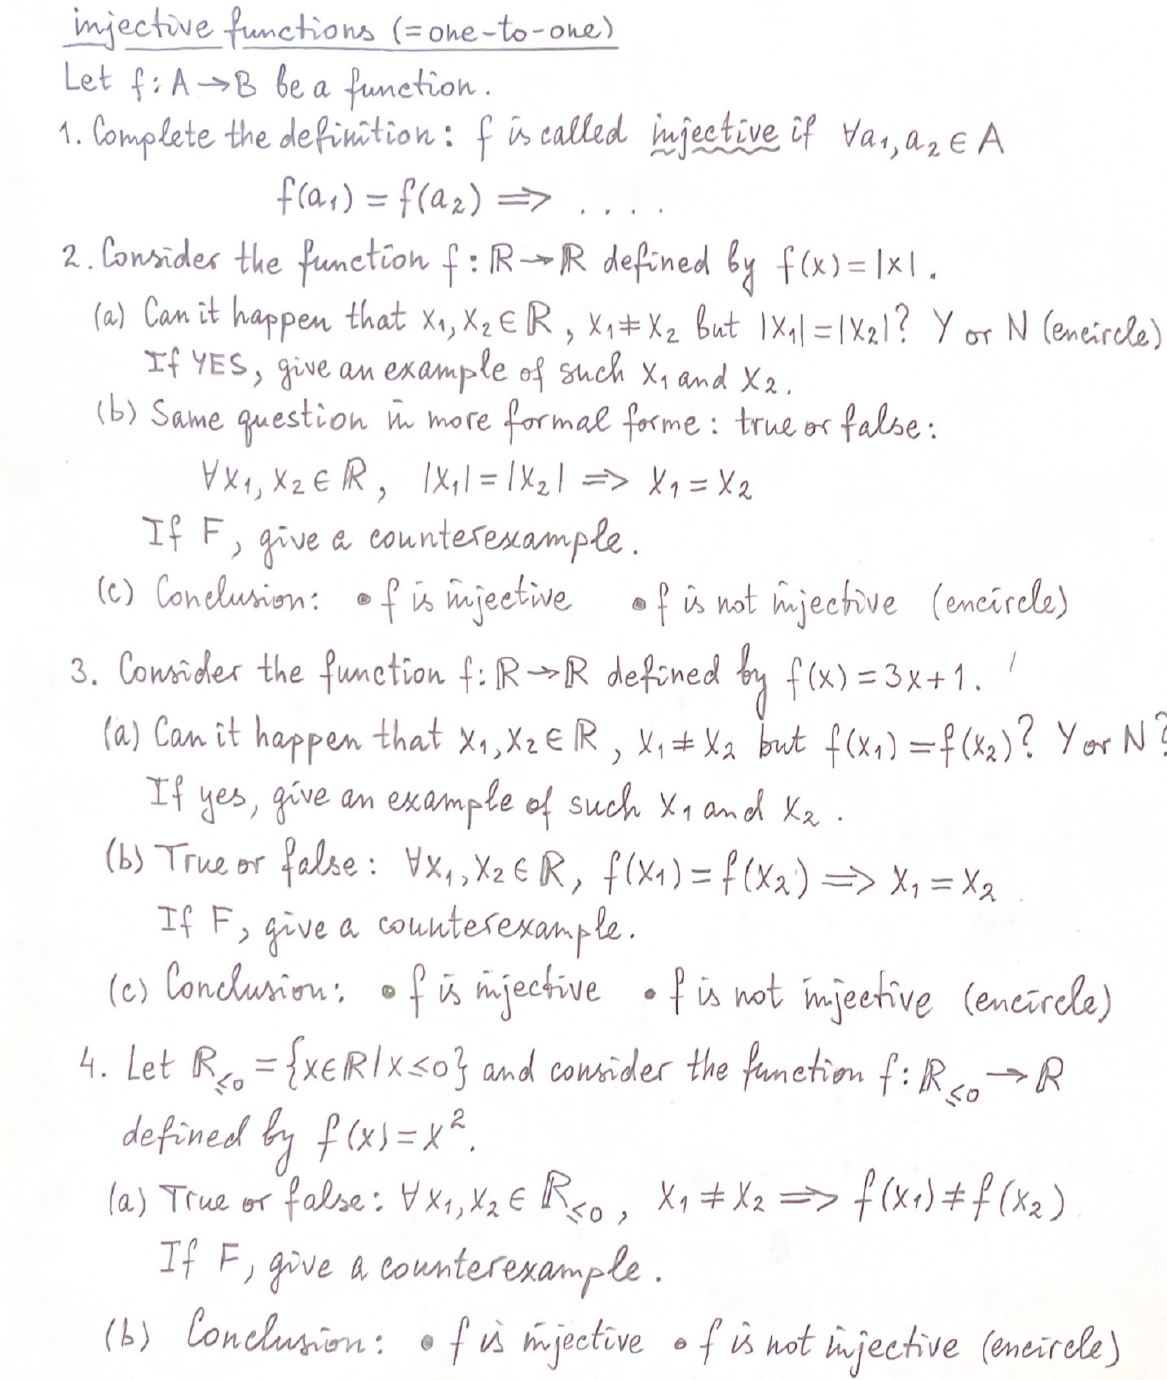 injective functions (= one-to-one)
Let f: A → B be a function.
1. Complete the definition: f is called injective if ∀a₁, a₂ ∈ A
f(a₁) = f(a₂) ⟹ ....
2. Consider the function f: ℝ → ℝ defined by f(x) = |x|.
(a) Can it happen that x₁, x₂ ∈ ℝ, x₁ ≠ x₂ but |x₁| = |x₂|? Y or N (encircle)
If YES, give an example of such x₁ and x₂.
(b) Same question in more formal forme: true or false:
∀x₁, x₂ ∈ ℝ, |x₁| = |x₂| ⟹ x₁ = x₂
If F, give a counterexample.
(c) Conclusion: • f is injective • f is not injective (encircle)
3. Consider the function f: ℝ → ℝ defined by f(x) = 3x + 1.
(a) Can it happen that x₁, x₂ ∈ ℝ, x₁ ≠ x₂ but f(x₁) = f(x₂)? Y or N?
If yes, give an example of such x₁ and x₂.
(b) True or false: ∀x₁, x₂ ∈ ℝ, f(x₁) = f(x₂) ⟹ x₁ = x₂
If F, give a counterexample.
(c) Conclusion: • f is injective • f is not injective (encircle)
4. Let ℝ≤0 = {x ∈ ℝ | x ≤ 0} and consider the function f: ℝ≤0 → ℝ
defined by f(x) = x².
(a) True or false: ∀x₁, x₂ ∈ ℝ≤0, x₁ ≠ x₂ ⟹ f(x₁) ≠ f(x₂)
If F, give a counterexample.
(b) Conclusion: • f is injective • f is not injective (encircle)